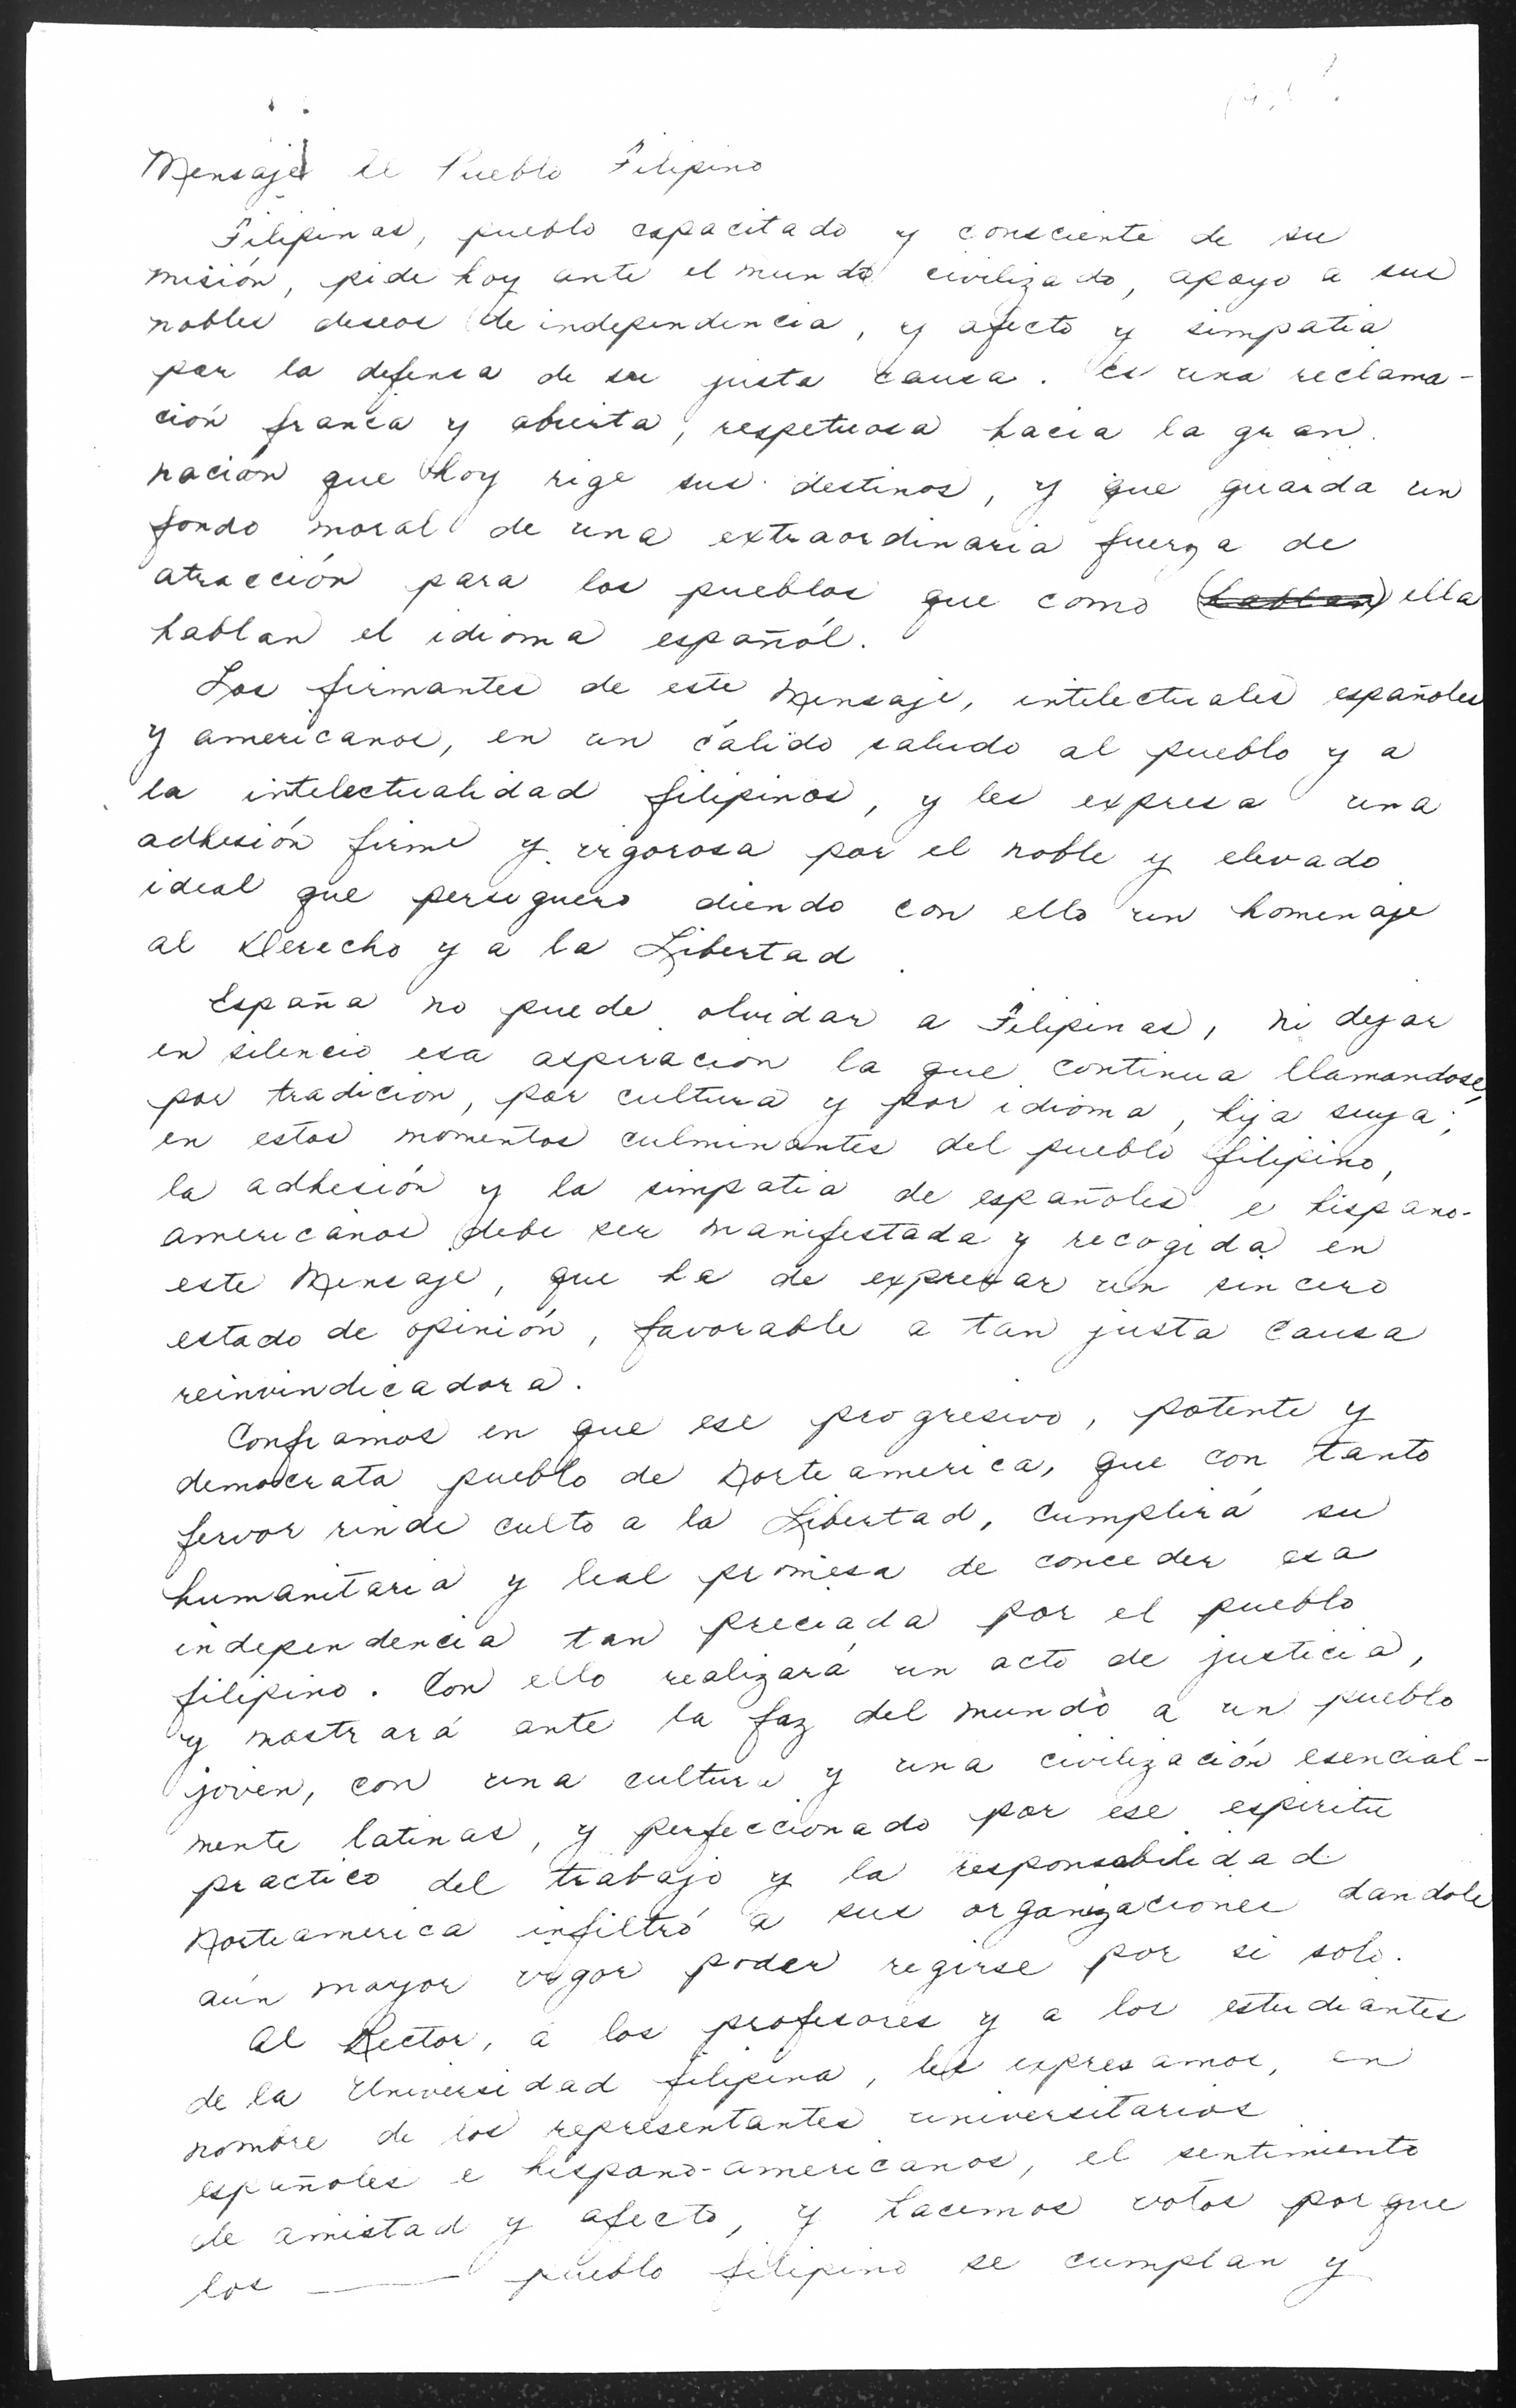 Mensaje al Pueblo Filipino
Filipinas, pueblo capacitado y consciente de su
misión, pide hoy ante el mundo civilizado, apoyo a sus
nobles deseos de independencia, y afecto y simpatia
por la defensa de su justa causa. Es una reclama-
ción franca y abierta, respetuosa hacia la gran
nación que hoy rige sus destinos, y que guarda un
fondo moral de una extraordinaria fuerza de
atracción para los pueblos que como (hablan) ella
hablan el idioma español.
Los firmantes de este Mensaje, intelectuales españoles
y americanos, en un cálido saludo al pueblo y a
la intelectualidad filipinos, y les expresa una
adhesión firme y vigorosa por el noble y elevado
ideal que persiguero diendo con ello un homenaje
al Derecho y a la Libertad
España no puede olvidar a Filipinas, ni dejar
en silencio esa aspiracion la que continua llamandose,
por tradicion, por cultura y por idioma, hija suya;
en estos momentos culminantes del pueblo filipino,
la adhesión y la simpatia de españoles e hispano-
americanos debe ser manifestada y recogida en
este Mensaje, que ha de expresar un sincero
estado de opinión, favorable a tan justa causa
reinvindicadora.
Confiamos en que ese progresivo, potente y
democrata pueblo de Norteamerica, que con tanto
fervor rinde culto a la Libertad, cumplirá su
humanitaria y leal promesa de conceder esa
independencia tan preciada por el pueblo
filipino. Con ello realizará un acto de justicia,
y mostrará ante la faz del mundo a un pueblo
joven, con una cultura y una civilización esencial-
mente latinas, y perfeccionado por ese espiritu
practico del trabajo y la responsabilidad
Norteamerica infiltró a sus organizaciones dandole
aún mayor vigor poder regirse por si solo.
Al Rector, a los profesores y a los estudiantes
de la Universidad filipina, les expresamos, en
nombre de los representantes universitarios
españoles e hispano-americanos, el sentimiento
de amistad y afecto, y hacemos votos porque
los ——— pueblo filipino se cumplan y